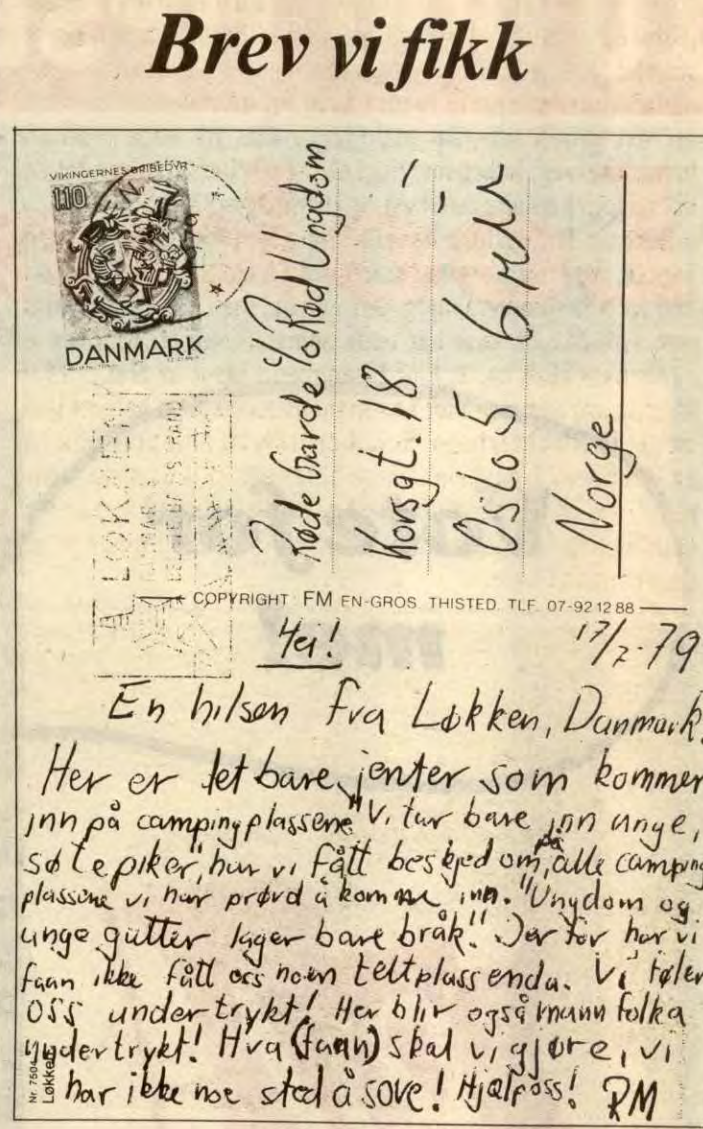 Brev vi fikk
VIKINGERNES GRIBEDYR
110
DANMARK
LØKKEN
DANMARKS
Røde Garde c/o Rød Ungdom
Korsgt. 18
Oslo 5
Norge
COPYRIGHT FM EN-GROS THISTED TLF. 07-92 12 88
Hei! 17/7-79
En hilsen fra Løkken, Danmark.
Her er det bare jenter som kommer
inn på campingplassene. "Vi tar bare inn unge,
søte piker", har vi fått beskjed om på alle camping
plassene vi har prøvd å komme inn. "Ungdom og
unge gutter lager bare bråk". Derfor har vi
faan ikke fått oss noen teltplass enda. Vi føler
oss undertrykt! Her blir også mannfolka
undertrykt! Hva (faan) skal vi gjøre, vi
har ikke noe sted å sove! Hjælp oss! RM
Nr. 7504
Løkken